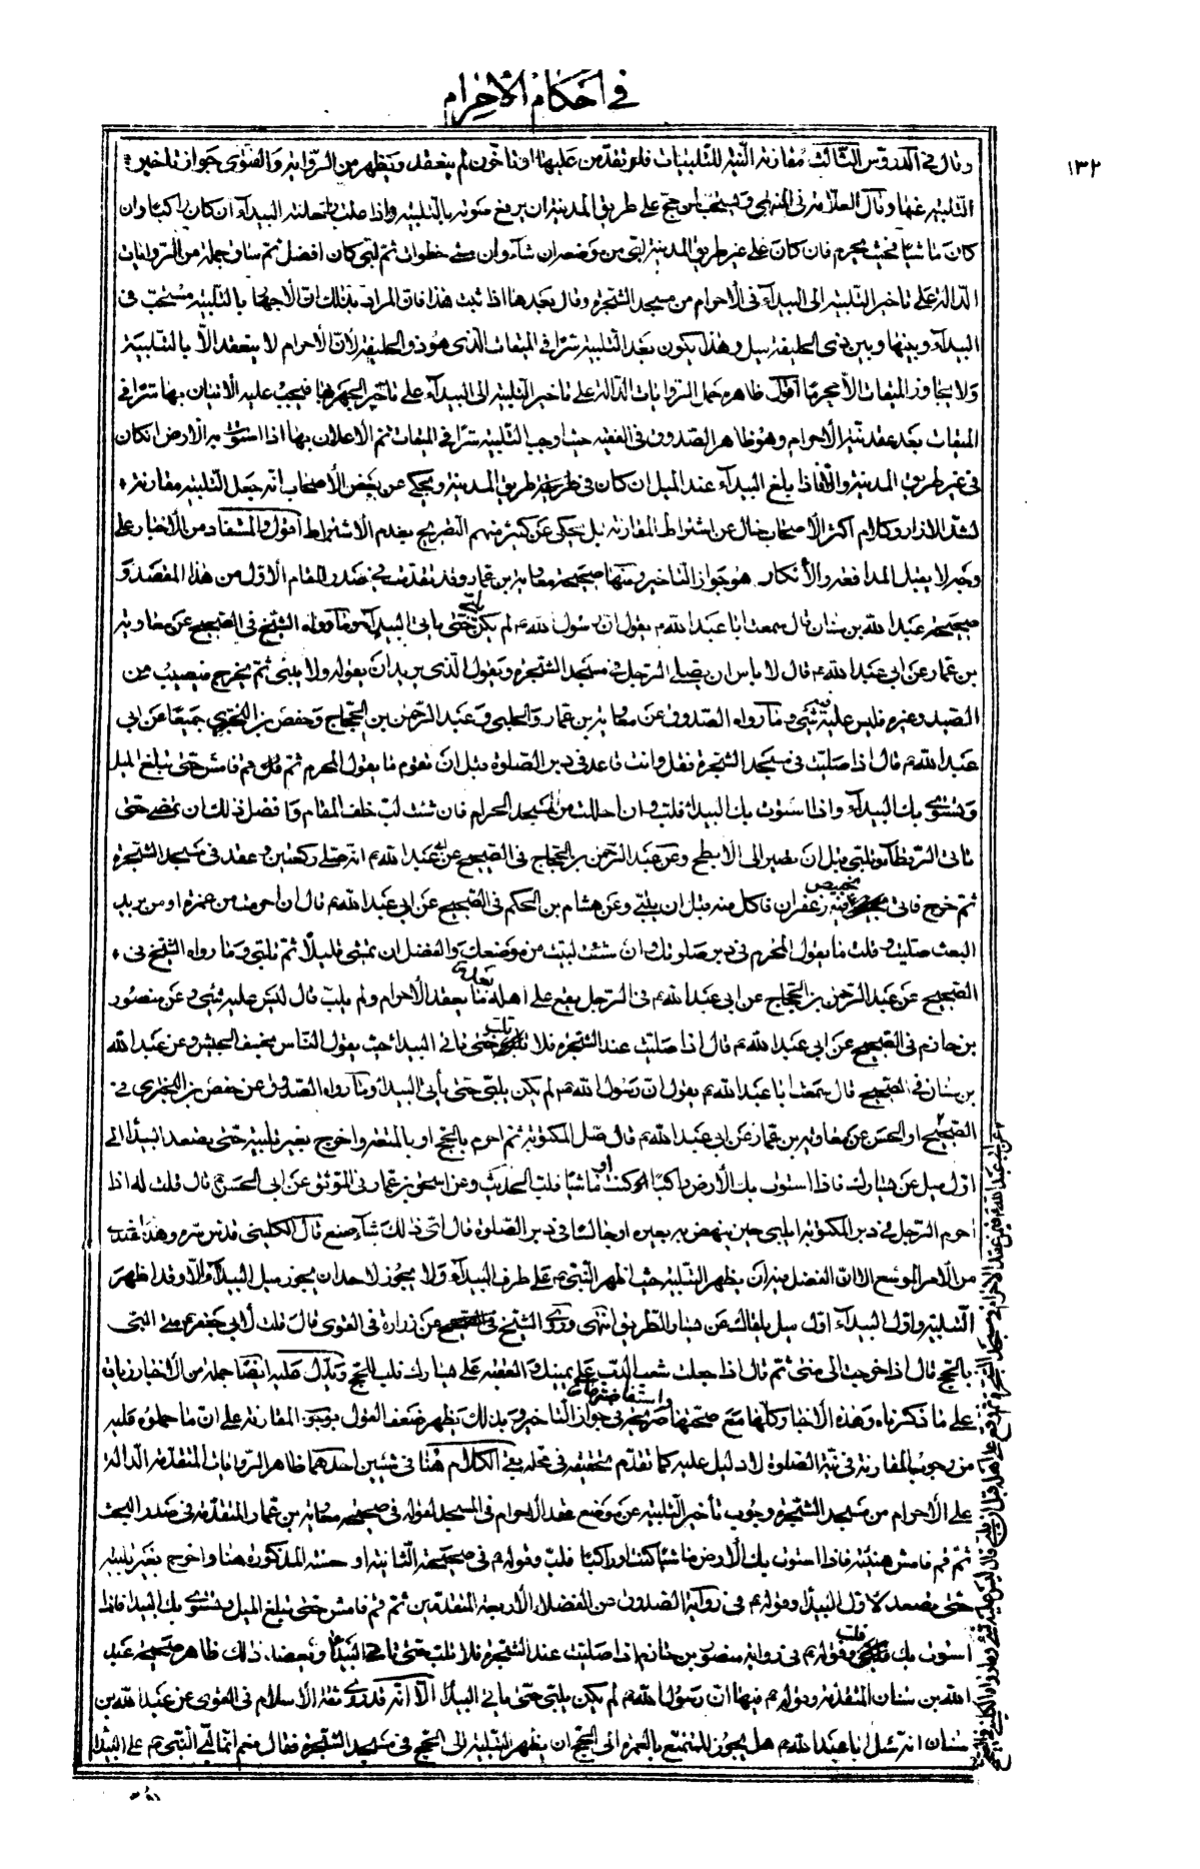 في احكام الاحرام
١٣٢
وقال في الدروس الثالث مقارنة النية للتلبيات فلو تقدمن عليها او تاخرن لم ينعقد ويظهر من الرواية والفتوى جواز تاخير
التلبية عنها وقال العلامة في المنتهى ويستحب لمن حج على طريق المدينة ان يرفع صوته بالتلبية واذا علت راحلته البيداء ان كان راكبا وان
كان ماشيا فحيث يحرم فان كان على غير طريق المدينة لبى من موضعه ان شاء وان مشى خطوات ثم لبى كان افضل ثم ساق جملة من الروايات
الدالة على تاخير التلبية الى البيداء في الاحرام من مسجد الشجرة وقال بعدها اذا ثبت هذا فان المراد بذلك ان الاجهار بالتلبية مستحب في
البيداء وبينها وبين ذي الحليفة ميل وهذا يكون بعد التلبية سرا في الميقات الذي هو ذو الحليفة لان الاحرام لا ينعقد الا بالتلبية
ولا يجاوز الميقات الا محرما اقول ظاهره حمل الروايات الدالة على تاخير التلبية الى البيداء على تاخير الجهر بها فيجب عليه الاتيان بها سرا في
الميقات بعد عقد نية الاحرام وهو ظاهر الصدوق في الفقيه حيث اوجب التلبية سرا في الميقات ثم الاعلان بها اذا استوت به الارض ان كان
في غير طريق المدينة و اذا بلغ البيداء عند الميل ان كان في طريق المدينة ويحكى عن بعض الاصحاب انه جعل التلبية مقارنة
لشد الازار وكلام اكثر الاصحاب خال عن اشتراط المقارنة بل يحكى عن كثير منهم التصريح بعدم الاشتراط اقول والمستفاد من الاخبار على
وجه لا يقبل المدافعة والانكار هو جواز التاخير ومنها صحيحة معاوية بن عمار وقد تقدمت في صدر المقام الاول من هذا المقصد و
صحيحة عبد الله بن سنان قال سمعت ابا عبد الله ع يقول ان رسول الله ص لم يكن يلبي حتى ياتي البيداء وما رواه الشيخ في الصحيح عن معاوية
بن عمار عن ابي عبد الله ع قال لا باس ان يصلي الرجل في مسجد الشجرة ويقول الذي يريد ان يقوله ولا يلبي ثم يخرج فيصيب من
الصيد وغيره فليس عليه فيه شيء وما رواه الصدوق عن معاوية بن عمار والحلبي وعبد الرحمن بن الحجاج وحفص بن البختري جميعا عن ابي
عبد الله ع قال اذا صليت في مسجد الشجرة فقل وانت قاعد في دبر الصلوة قبل ان تقوم ما يقول المحرم ثم قم فامش حتى تبلغ الميل
وتستوي بك البيداء واذا استوت بك البيداء فلب وان اهللت من المسجد الحرام فان شئت لب خلف المقام وافضل ذلك ان تمضي حتى
تاتي الرقطاء وتلبي قبل ان تصير الى الابطح وعن عبد الرحمن بن الحجاج في الصحيح عن ابي عبد الله ع انه صلى ركعتين وعقد في مسجد الشجرة
ثم خرج فاتي بخبيص فيه زعفران فاكل منه قبل ان يلبي وعن هشام بن الحكم في الصحيح عن ابي عبد الله ع قال ان احرمت من غمرة او من بريد
البعث صليت وقلت ما يقول المحرم في دبر صلوتك وان شئت لبيت من موضعك والفضل ان تمشي قليلا ثم تلبي وما رواه الشيخ في
الصحيح عن عبد الرحمن بن الحجاج عن ابي عبد الله ع في الرجل يقع على اهله بعد ما يعقد الاحرام ولم يلب قال ليس عليه شيء وعن منصور
بن حازم في الصحيح عن ابي عبد الله ع قال اذا صليت عند الشجرة فلا تلب حتى تاتي البيداء حيث يقول الناس يخسف بالجيش وعن عبد الله
بن سنان في الصحيح قال سمعت ابا عبد الله ع يقول ان رسول الله ص لم يكن يلبي حتى ياتي البيداء وما رواه الصدوق عن حفص بن البختري في
الصحيح او الحسن عن معاوية بن عمار عن ابي عبد الله ع قال صل المكتوبة ثم احرم بالحج او بالمتعة واخرج بغير تلبية حتى تصعد البيداء الى
اول ميل عن يسارك فاذا استوت بك الارض راكبا كنت او ماشيا فلب الحديث وعن اسحق بن عمار في الموثق عن ابي الحسن ع قال قلت له اذا
احرم الرجل في دبر المكتوبة ايلبي حين ينهض به بعيره او جالسا في دبر الصلوة قال اي ذلك شاء صنع قال الكليني قدس سره وهذا عندي
من الامر الموسع الا ان الفضل فيه ان يظهر التلبية حيث اظهر النبي ص على طرف البيداء ولا يجوز لاحد ان يجوز ميل البيداء الا وقد اظهر
التلبية واول البيداء اول ميل يلقاك عن يسار الطريق انتهى وروى الشيخ عن زرارة في القوي قال قلت لابي جعفر ع متى البي
بالحج قال اذا خرجت الى منى ثم قال اذا جعلت شعب الدب على يمينك والعقبة على يسارك فلب للحج ويدل عليه ايضا جملة من الاخبار زيادة
على ما ذكرناه وهذه الاخبار كلها مع صحتها واستفاضتها صريحة في جواز التاخير وبذلك يظهر ضعف القول بوجوب المقارنة على ان ما حملوه عليه
من وجوب المقارنة في نية الصلوة لا دليل عليه كما تقدم تحقيقه في محله بقي الكلام هنا في شيئين احدهما ظاهر الروايات المتقدمة الدالة
على الاحرام من مسجد الشجرة وجوب تاخير التلبية عن موضع عقد الاحرام في المسجد لقوله في صحيحة معاوية بن عمار المتقدمة في صدر البحث
ثم قم فامش هنيئة فاذا استوت بك الارض ماشيا كنت او راكبا فلب وقوله ع في صحيحته الثانية او حسنته المذكورة هنا واخرج بغير تلبية
حتى تصعد لاول البيداء وقوله ع في رواية الصدوق عن الفضلاء الاربعة المتقدمين ثم قم فامش حتى تبلغ الميل وتستوي بك البيداء فاذا
استوت بك فلب وقوله ع في رواية منصور بن حازم اذا صليت عند الشجرة فلا تلب حتى تاتي البيداء ويعضد ذلك ظاهر صحيحة عبد
الله بن سنان المتقدمة وقوله ع فيها ان رسول الله ص لم يكن يلبي حتى ياتي البيداء الا انه قد روى ثقة الاسلام في القوي عن عبد الله بن
سنان انه سئل ابا عبد الله ع هل يجوز للمتمتع بالعمرة الى الحج ان يظهر التلبية في مسجد الشجرة فقال نعم انما لبى النبي ص على البيداء